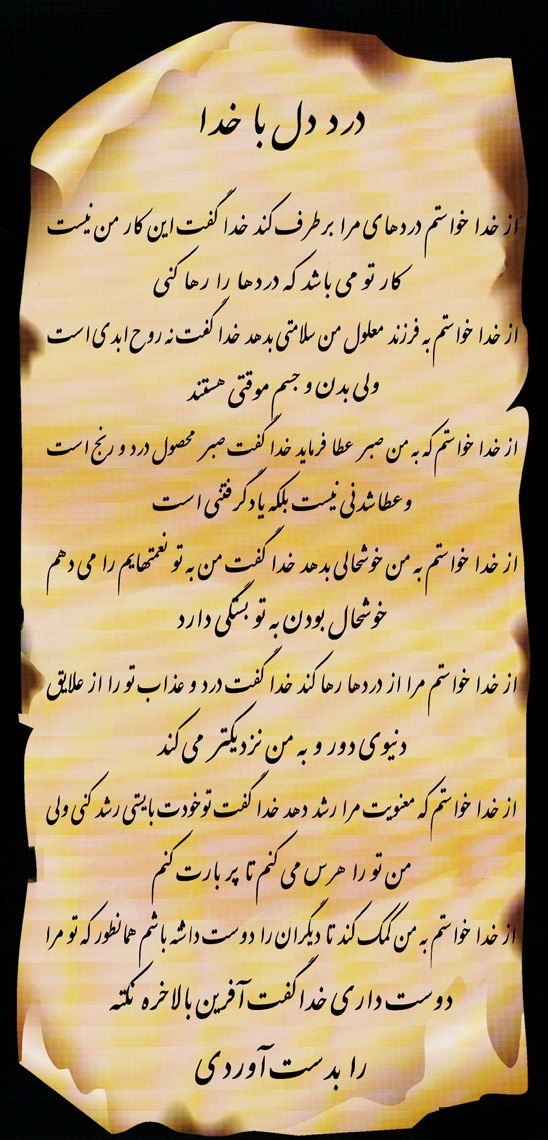 درد دل با خدا
از خدا خواستم دردهای مرا برطرف کند خدا گفت این کار من نیست
کار تو می باشد که دردها را رها کنی
از خدا خواستم به فرزند معلول من سلامتی بدهد خدا گفت نه روح ابدی است
ولی بدن و جسم موقتی هستند
از خدا خواستم که به من صبر عطا فرماید خدا گفت صبر محصول درد و رنج است
و عطا شدنی نیست بلکه یادگرفتنی است
از خدا خواستم به من خوشحالی بدهد خدا گفت من به تو نعمتهایم را می دهم
خوشحال بودن به تو بستگی دارد
از خدا خواستم مرا از دردها رها کند خدا گفت درد و عذاب تو را از علایق
دنیوی دور و به من نزدیکتر می کند
از خدا خواستم که معنویت مرا رشد دهد خدا گفت تو خودت بایستی رشد کنی ولی
من تو را هرس می کنم تا پر بارت کنم
از خدا خواستم به من کمک کند تا دیگران را دوست داشته باشم همانطور که تو مرا
دوست داری خدا گفت آفرین بالاخره نکته
را بدست آوردی